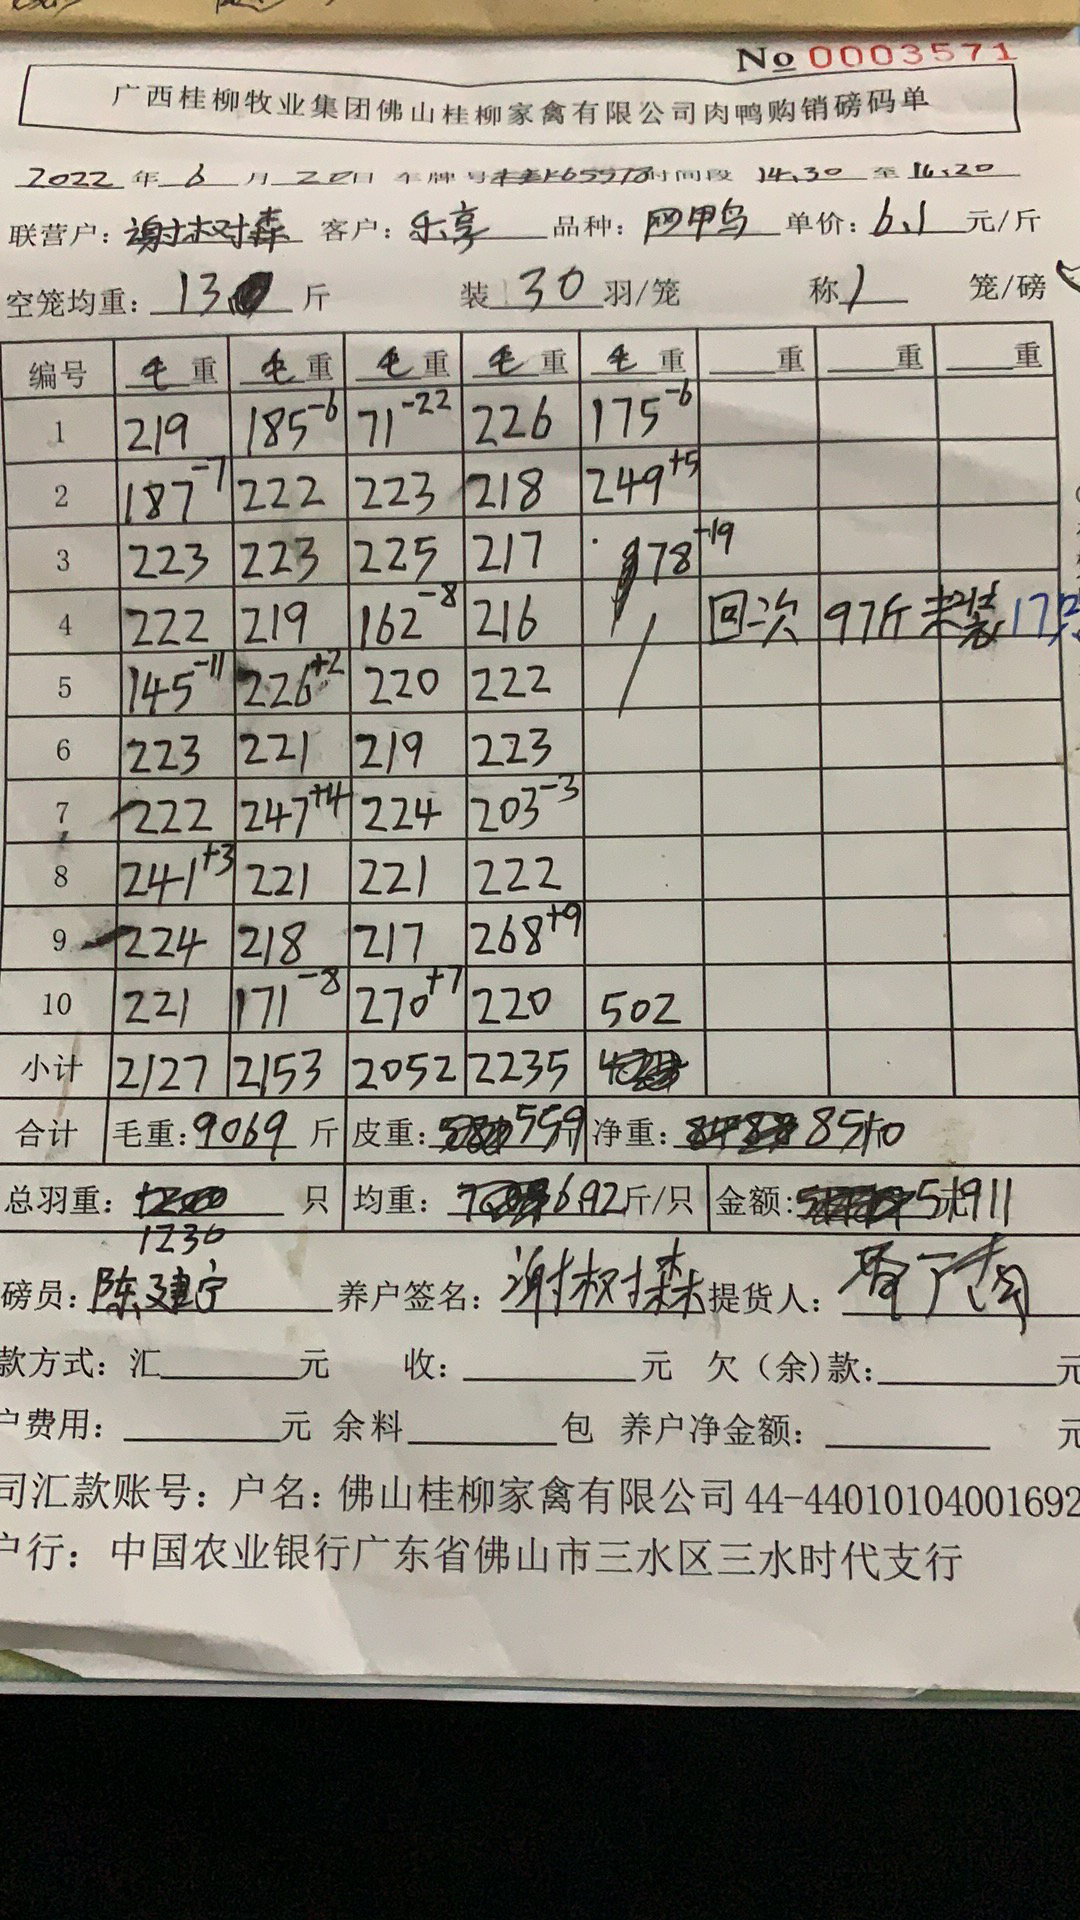 No 0003571
广西桂柳牧业集团佛山桂柳家禽有限公司肉鸭购销磅码单
2022 年 6 月 20 日 车牌号 时间段 14.30 至 16.20
联营户: 谢树森 客户: 乐享 品种: 四甲鸟 单价: 6.1 元/斤
空笼均重: 13 斤 装 30 羽/笼 称 1 笼/磅
编号 毛重 毛重 毛重 毛重 毛重 重 重 重
1 219 185-6 71-22 226 175-6
2 187-7 222 223 218 249+5
3 223 223 225 217 78-19
4 222 219 162-8 216 回次 97斤 未装 17只
5 145-11 226+2 220 222
6 223 221 219 223
7 222 247+4 224 203-3
8 241+3 221 221 222
9 224 218 217 268+9
10 221 171-8 270+7 220 502
小计 2127 2153 2052 2235
合计 毛重: 9069 斤 皮重: 559 斤 净重: 8510
总羽重: 只 均重: 6.92 斤/只 金额: 51911 元
1230
磅员: 陈建宁 养户签名: 谢树森 提货人:
款方式: 汇 元 收: 元 欠(余)款: 元
户费用: 元 余料 包 养户净金额: 元
司汇款账号: 户名: 佛山桂柳家禽有限公司 44-44010104001692
户行: 中国农业银行广东省佛山市三水区三水时代支行